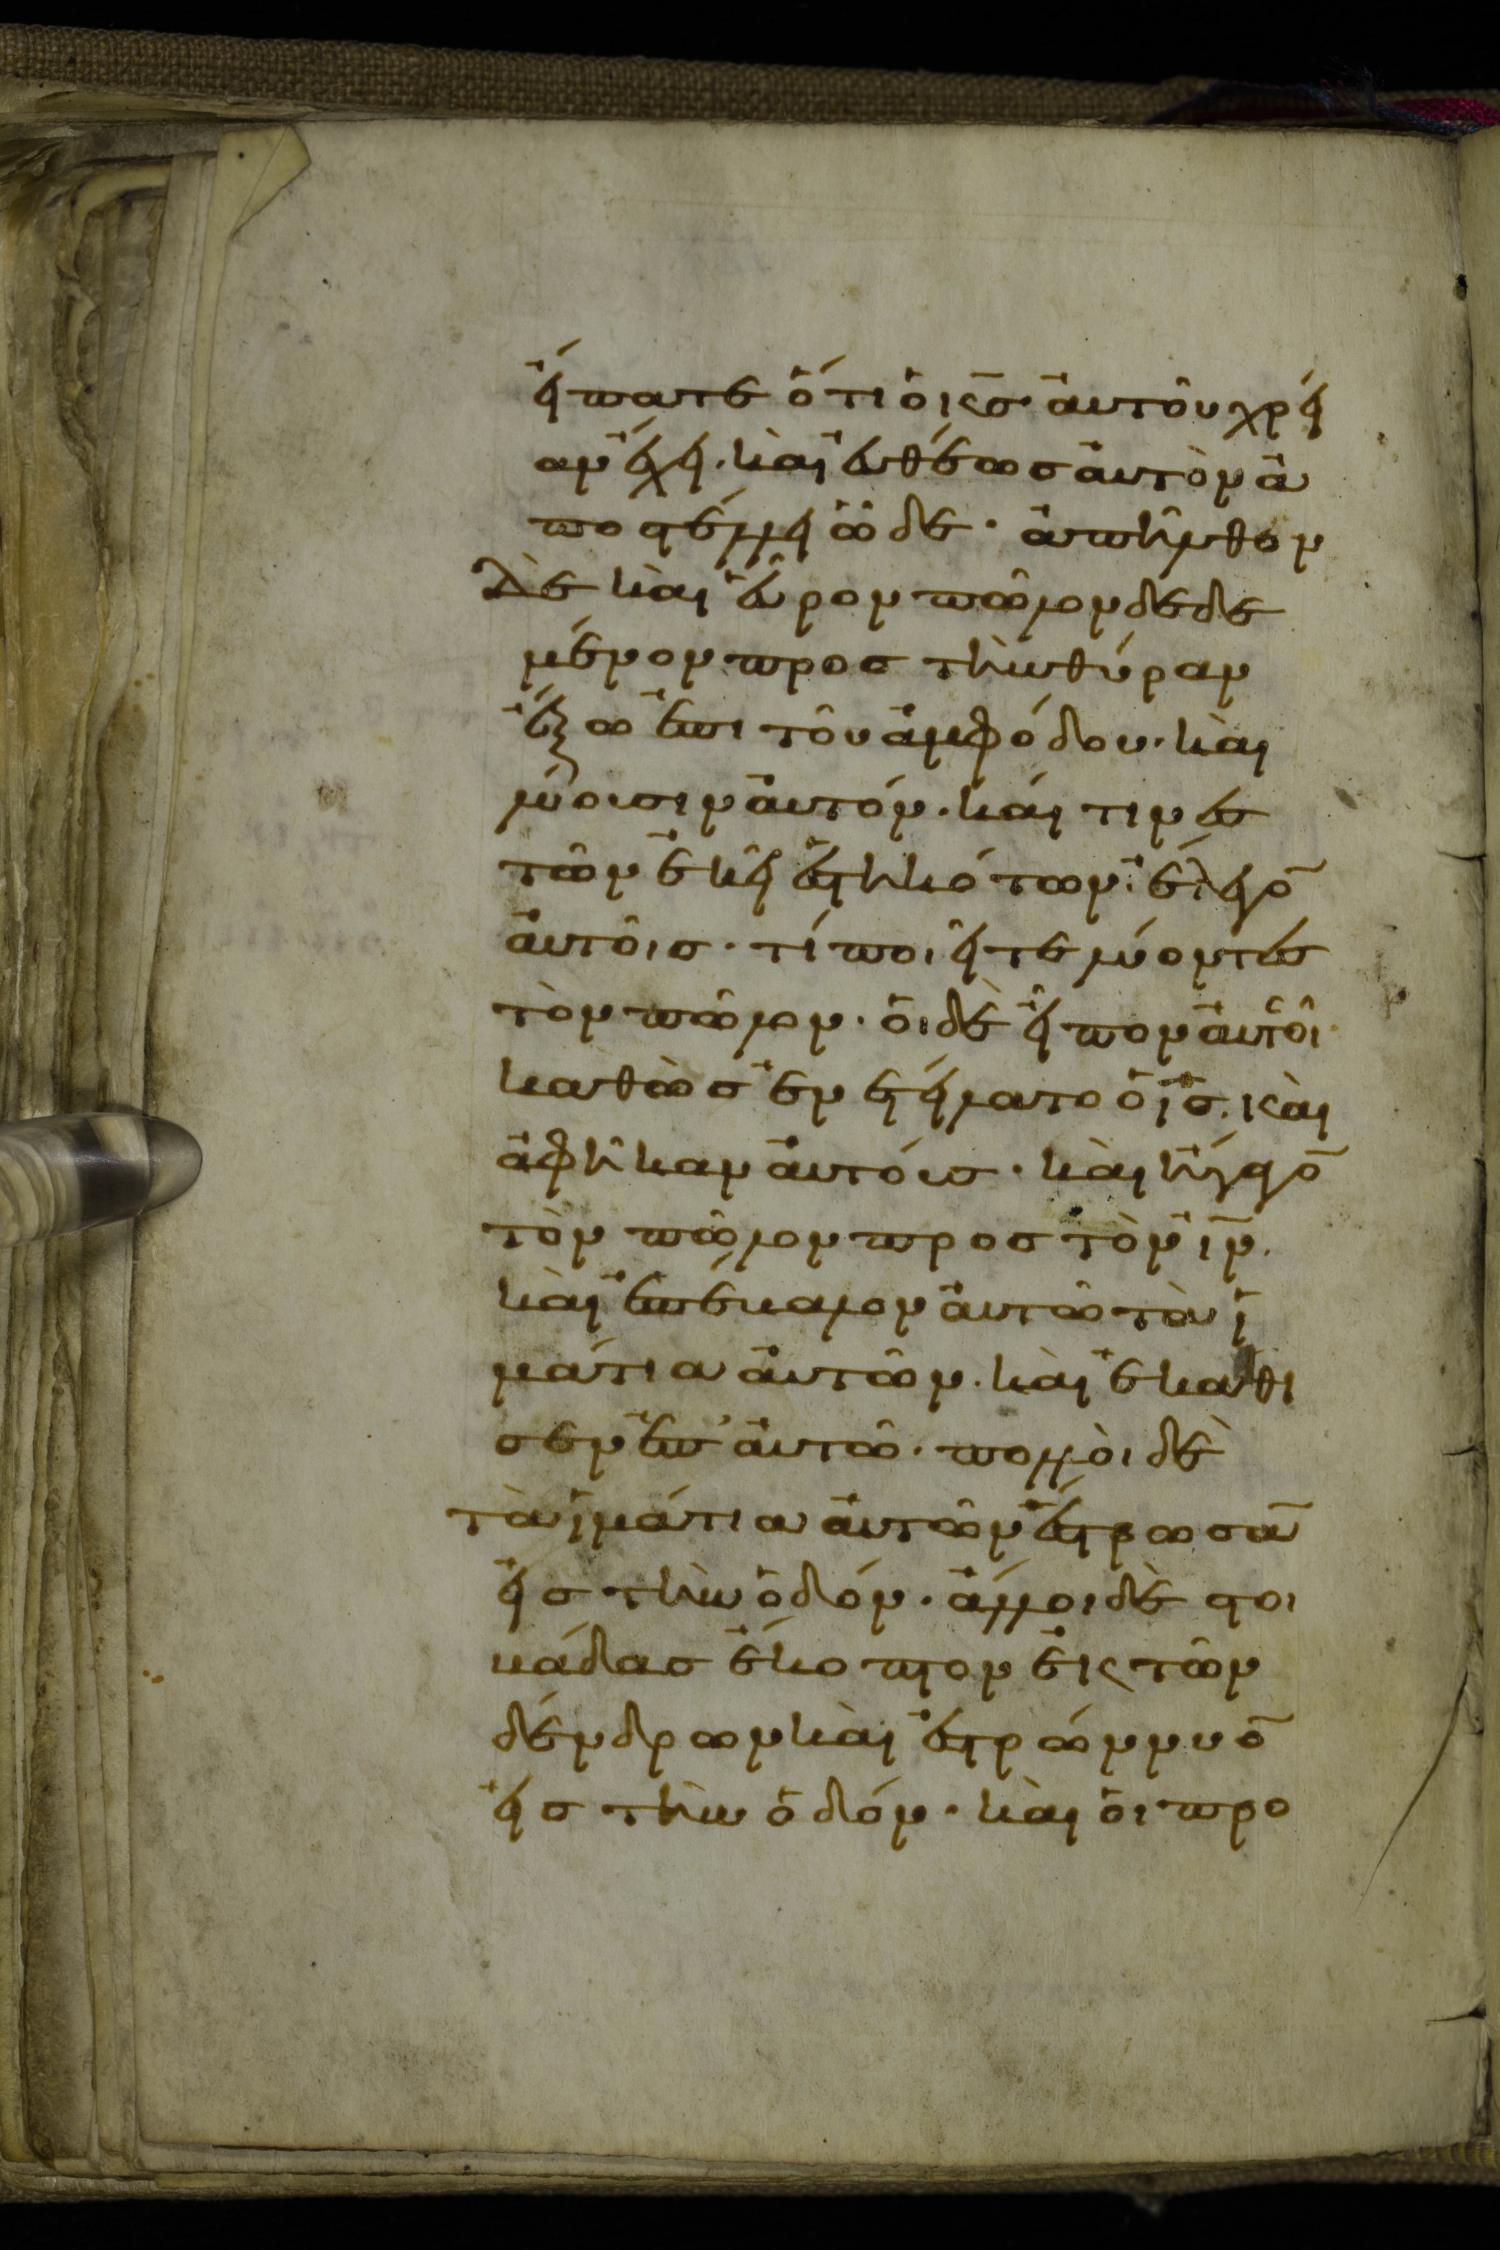 ἔιπατε ὅτι ὁ κ̅ς̅ ἀυτοῦ χρεί
αν ἔχει. καὶ ἐυθέωσ ἀυτὸν ἀ
ποστέλλει ὧδε· ἀπῆλθον
δὲ καὶ ἑῦρον πῶλον δεδε
μένον προσ τὴν θύραν
ἔξω ἐπι τοῦ ἀμφόδου· καὶ
λύουσιν ἀυτόν. καί τινεσ
τῶν ἐκεῖ ἑστηκότων ἔλεγο̅
ἀυτοῖσ· τί ποιεῖτε λύοντεσ
τὸν πῶλον· ὁι δὲ ἐῖπον ἀυτοῖ
καθὼσ ἐνετείλατο ὁ ι̅σ̅. καὶ
ἀφῆκαν ἀυτόυσ· καὶ ἤγαγο̅
τὸν πῶλον προσ τὸν ι̅ν̅.
καὶ ἐπέβαλον ἀυτῶ τὰ ἱ
μάτια ἀυτῶν. καὶ ἐκαθι
σεν ἐπ' ἀυτῶ. πολλὸι δὲ
τὰ ἱμάτια ἀυτῶν ἔστρωσα̅
ἐισ τὴν ὁδόν. ἄλλοι δὲ στοι
βάδασ ἔκοπτον ἐκ τῶν
δένδρων καὶ ἐστρώννυο̅
ἐισ τὴν ὁδόν. καὶ ὁι προ